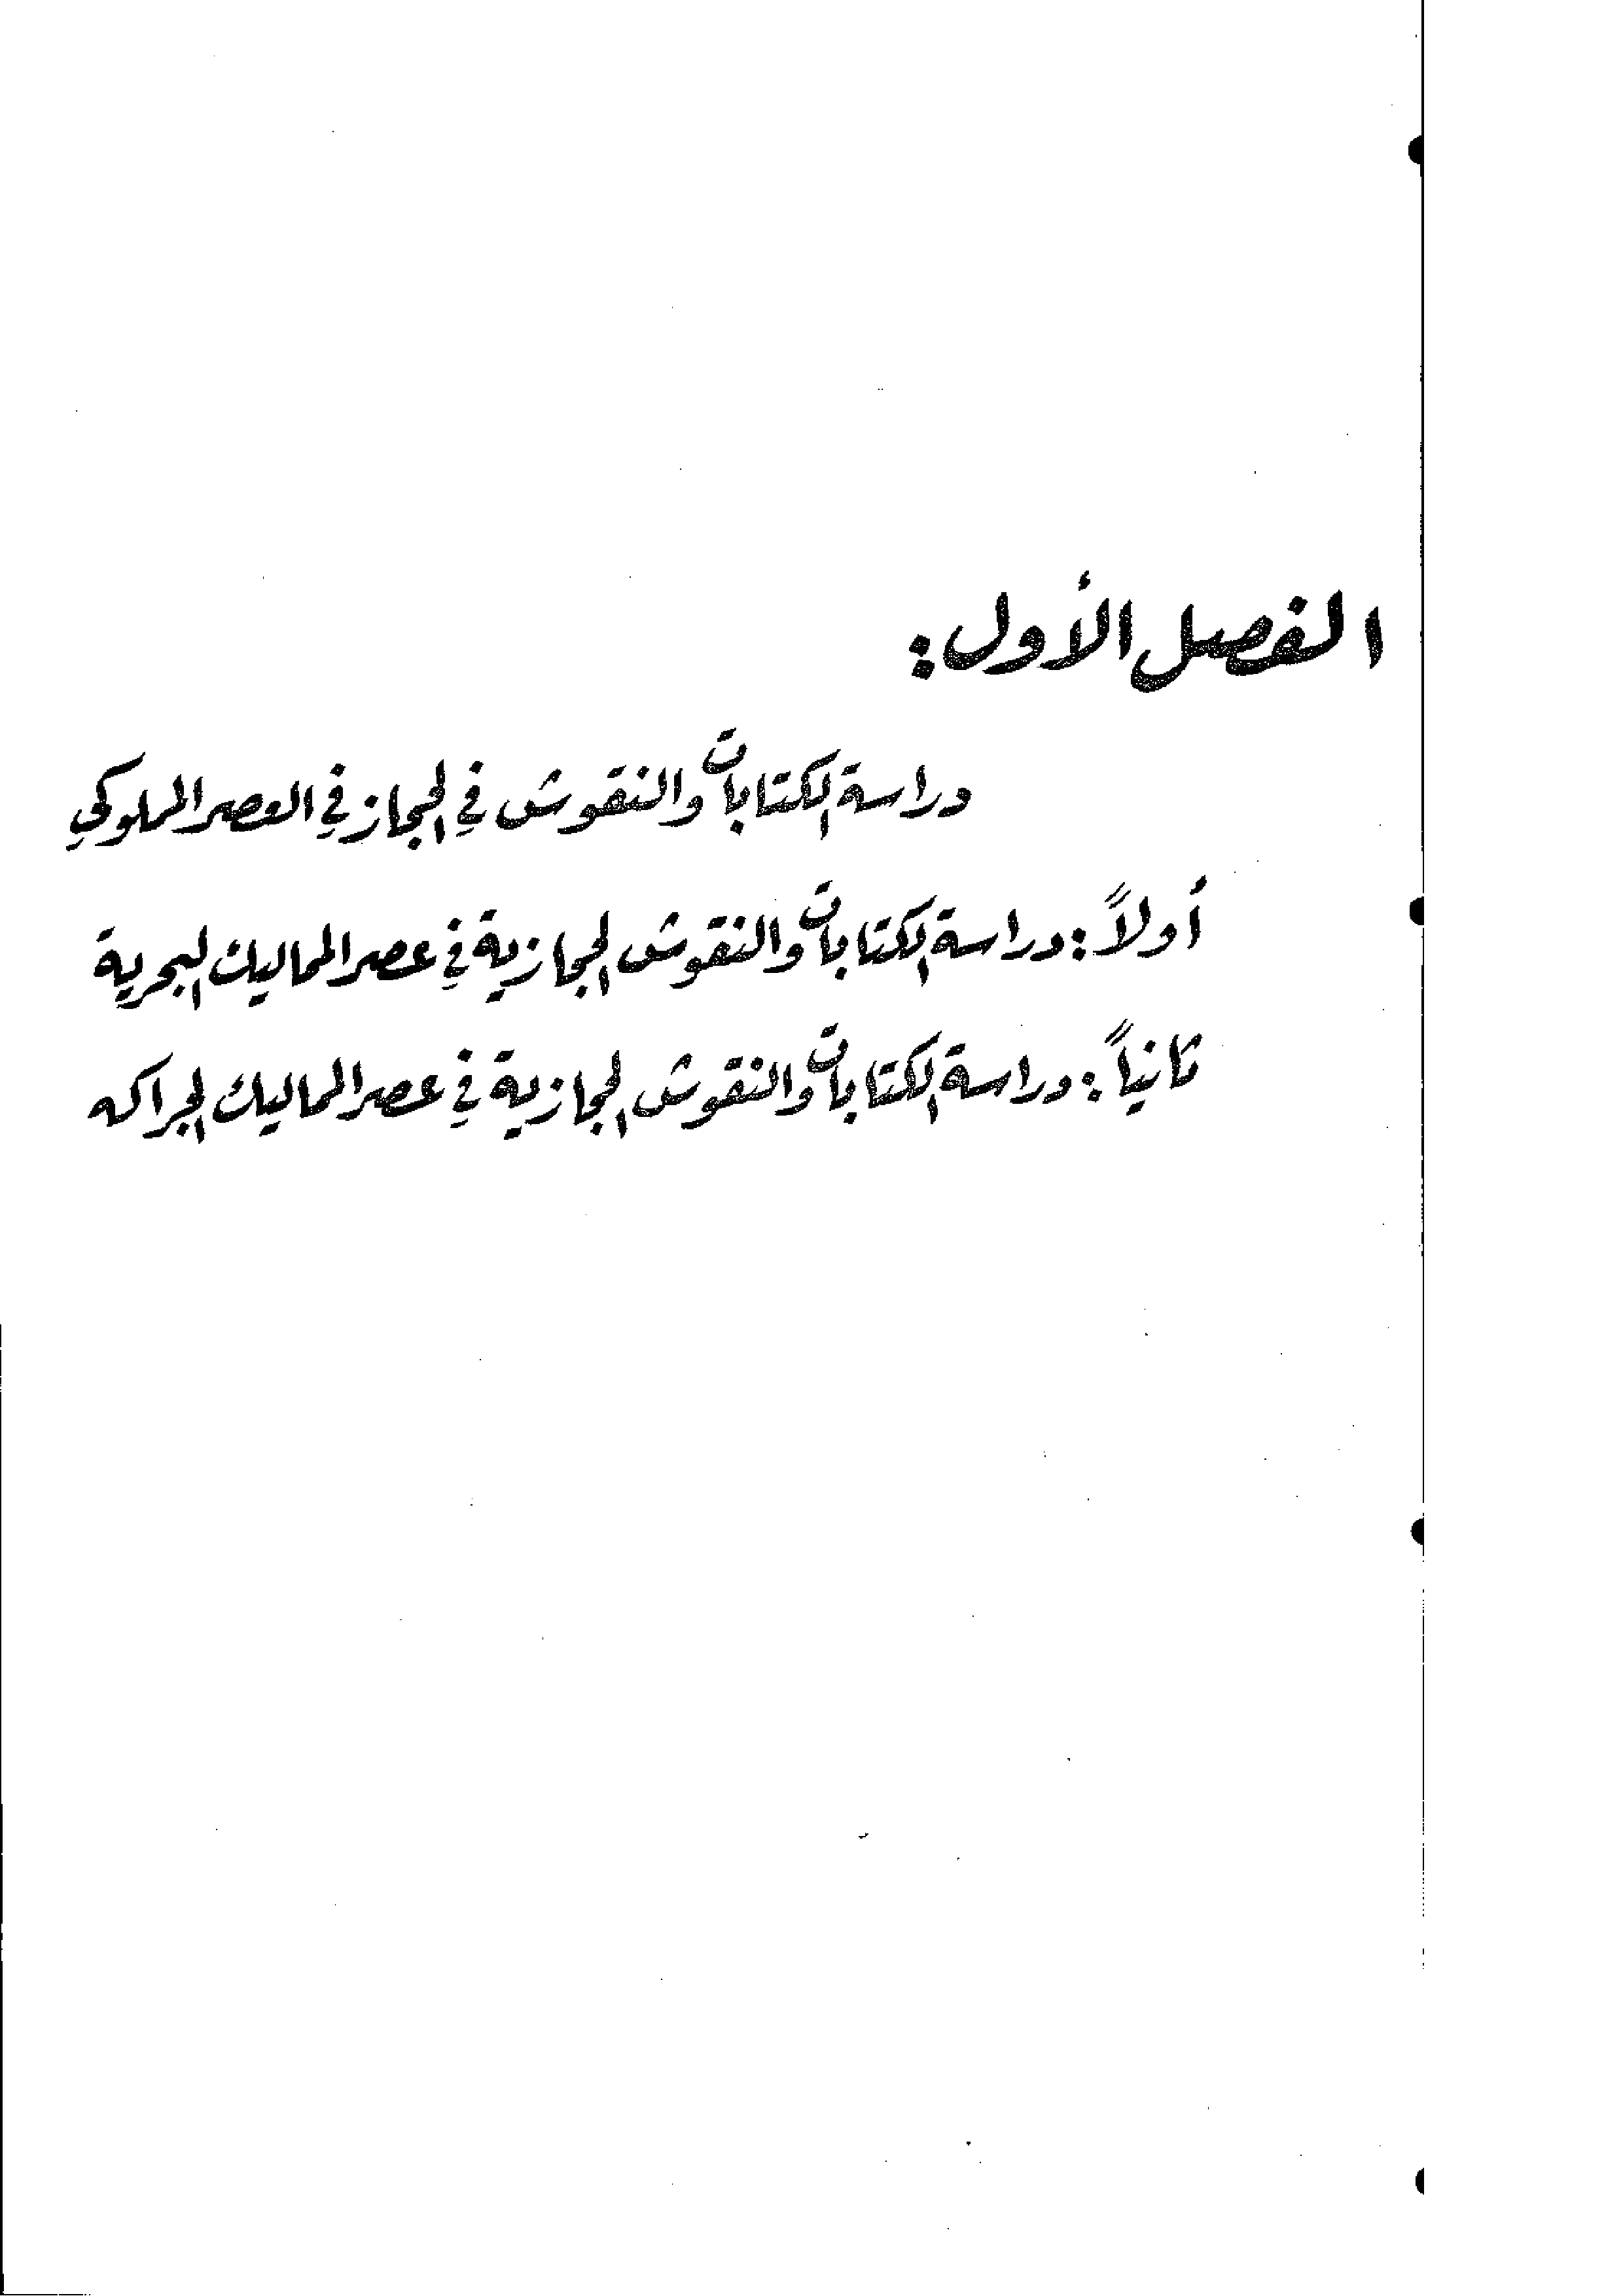 الفصل الأول:
دراسة الكتابات والنقوش في الحجاز في العصر المملوكي
أولاً: دراسة الكتابات والنقوش الحجازية في عصر المماليك البحرية
ثانياً: دراسة الكتابات والنقوش الحجازية في عصر المماليك الجراكسه